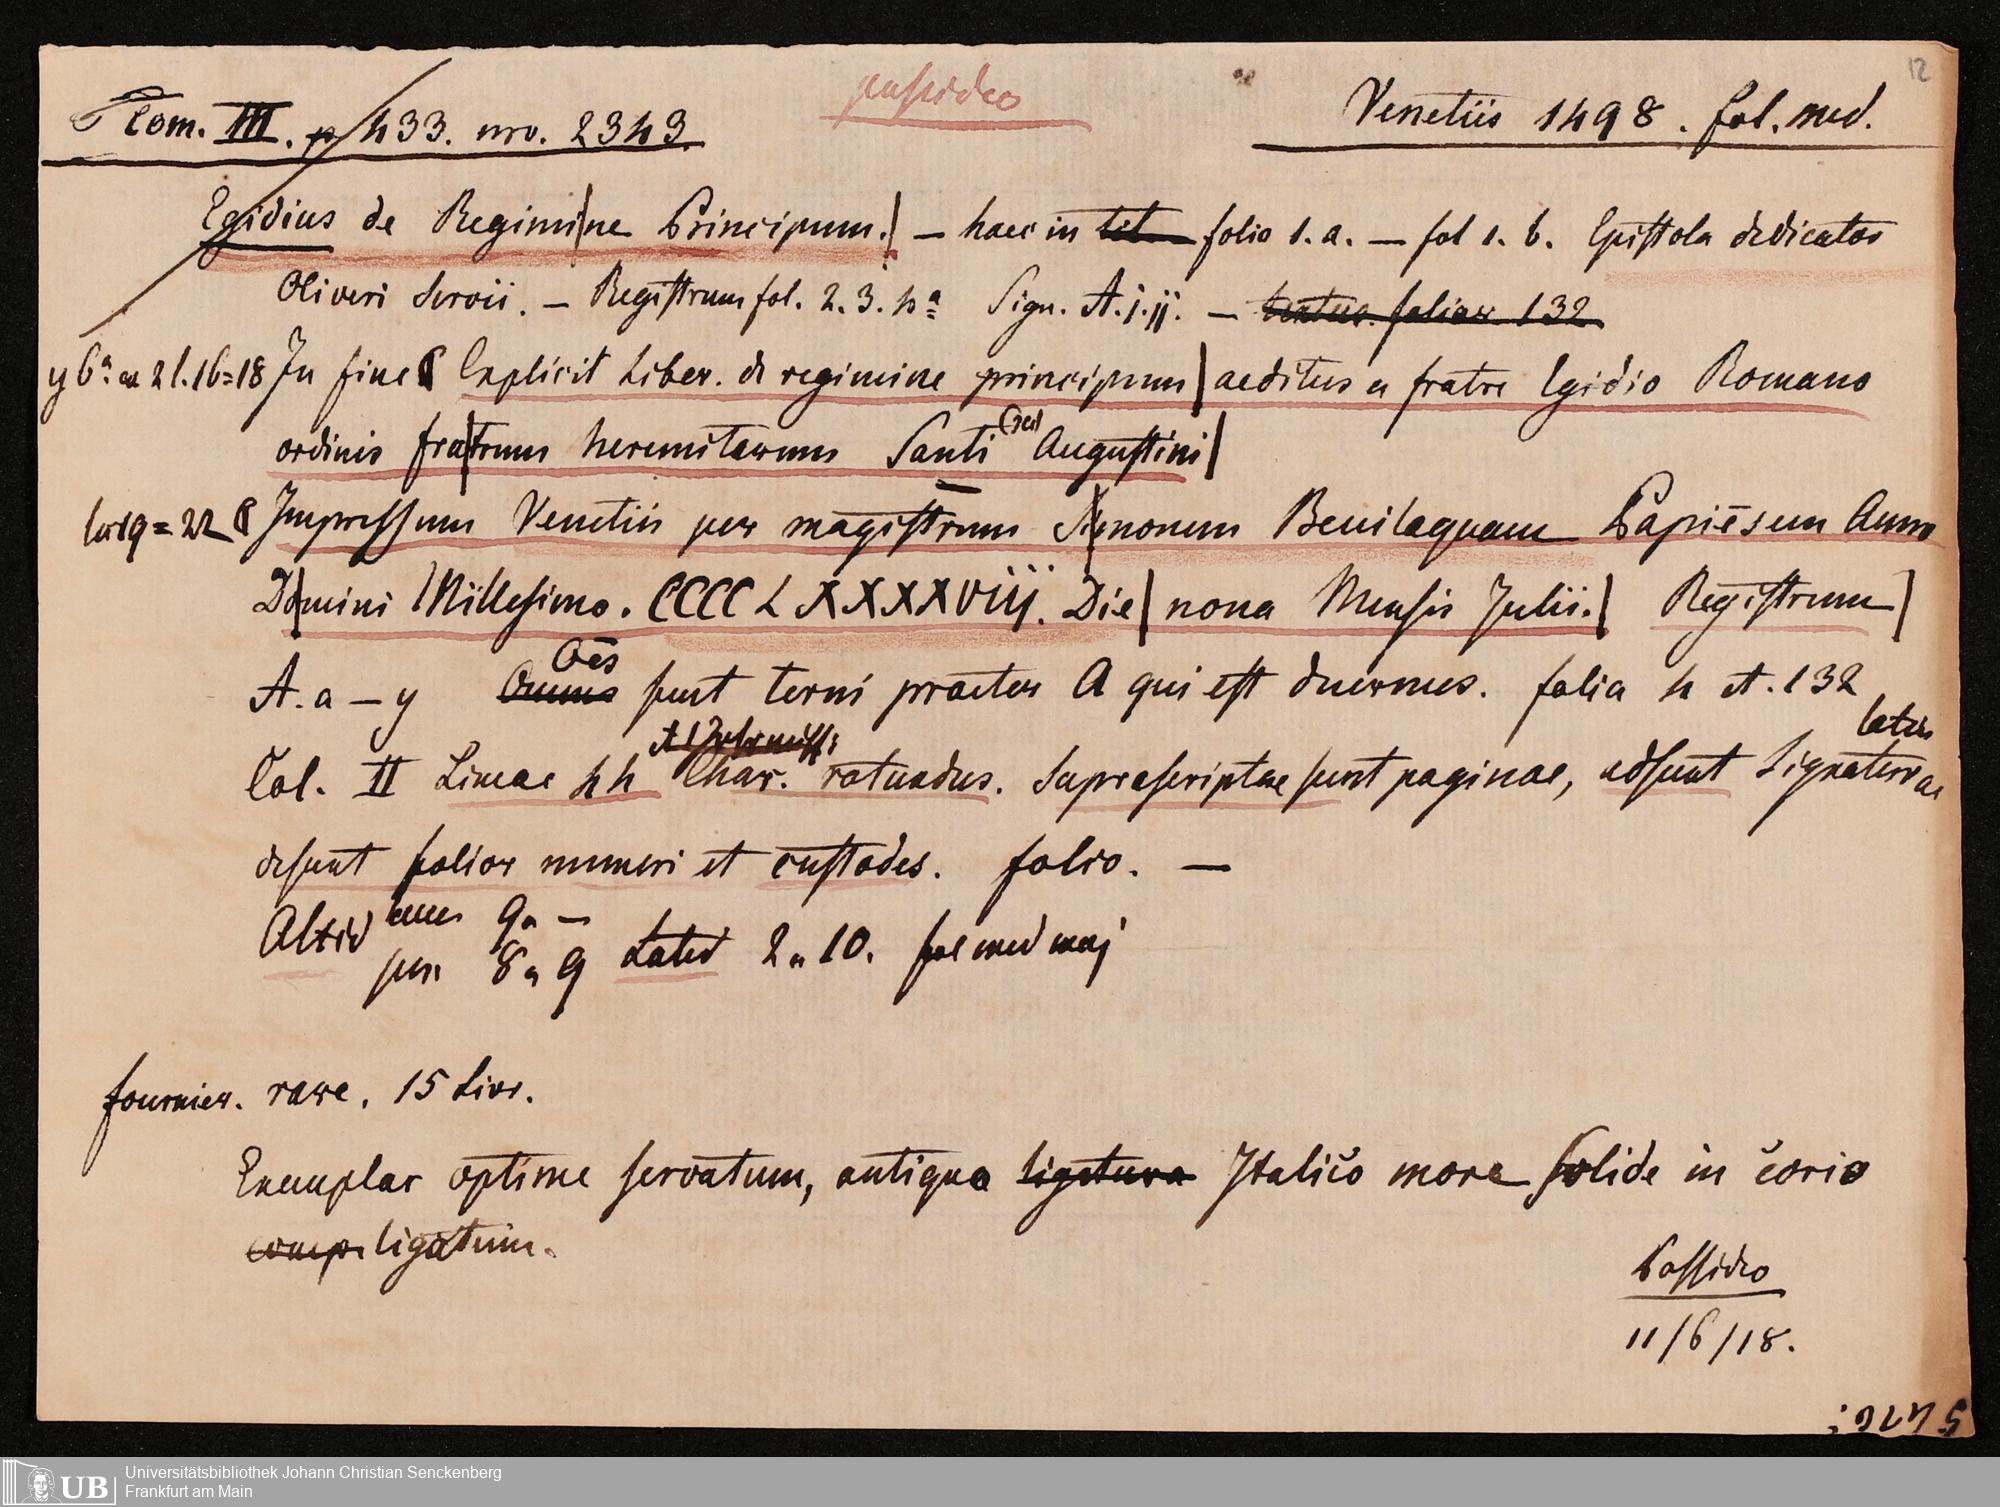 possideo
12
Tom. III. p 433. nro. 2343.
Venetiis 1498. fol. med.
Egidius de Regimi|ne Principum.| — haec in tit folio 1. a. — fol 1. b. Epistola dedicator
Oliveri Servii. — Registrum fol. 2. 3. 4a Sign. A. j. jj. — textus folior 132
y 6a. col 2 l. 16=18 In fine Explicit Liber. de regimine principum| aeditus a fratre Egidio Romano
ordinis fra|trum heremitarum Santi (sic) Augustini|
lin 19=22 Impressum Venetiis per magistrum Si|monem Beuilaquam Papiēsem Anno
Do|mini Millesimo. CCCCLXXXXVIIJ. Die| nona Mensis Julii.| Registrum|
A. a — y Omnes Oēs sunt terni praeter A qui est duernus. folia 4 et. 132
Col. II Lineae 44 Char. rotundus. Suprascriptae sunt paginae, adsunt Signaturae
desunt folior numeri et custodes. folio. —
Altid 9" —
pen 8" 9 Latid 2" 10. fol med maj
fournier. rare. 15 Livr.
Exemplar optime servatum, antiquo ligatura Italico more solide in corio
comp ligatum.
Possideo
11/6/18.